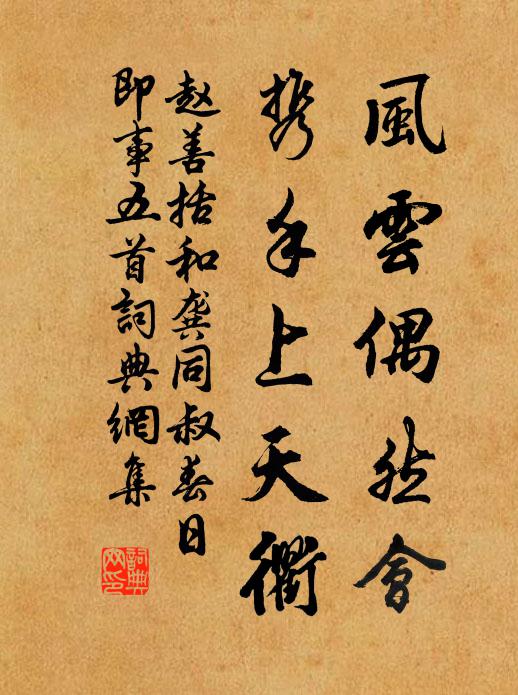 風雲偶然會
携手上天衢
赵善括和龚同叔春日
即事五首詞典網集
詞典网印